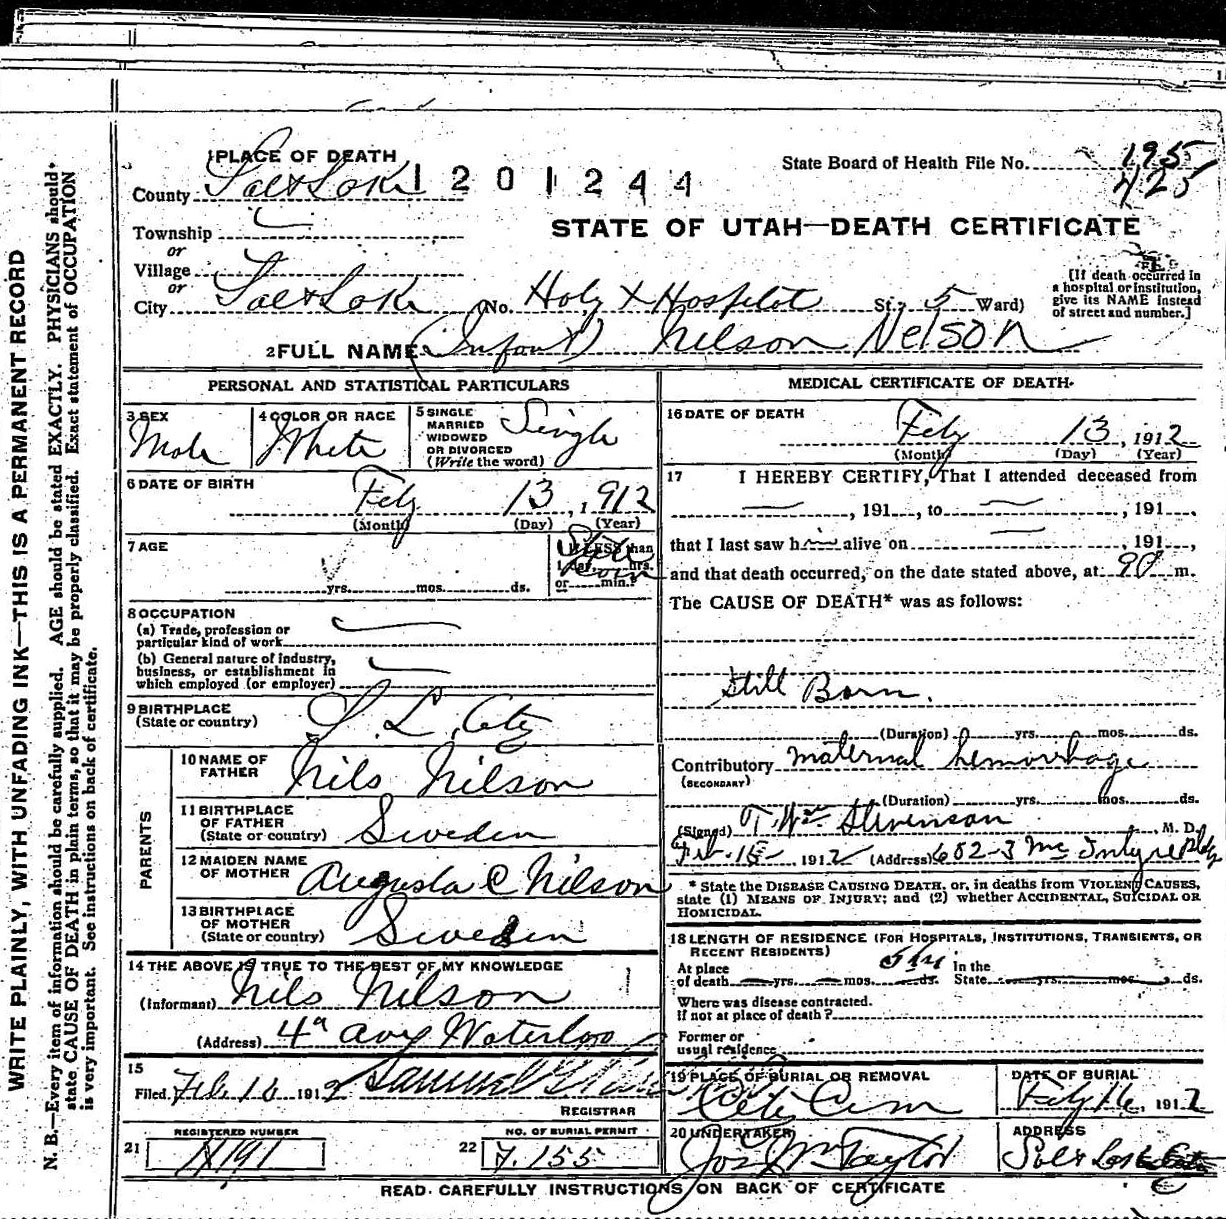 WRITE PLAINLY, WITH UNFADING INK—THIS IS A PERMANENT RECORD
N. B.—Every item of information should be carefully supplied. AGE should be stated EXACTLY. PHYSICIANS should
state CAUSE OF DEATH in plain terms, so that it may be properly classified. Exact statement of OCCUPATION
is very important. See instructions on back of certificate.
1 PLACE OF DEATH
State Board of Health File No. 195
425
County Salt Lake 1201244
STATE OF UTAH—DEATH CERTIFICATE
Township
or
Village
or
City Salt Lake (No. Holy X Hospital St; 5 Ward)
[If death occurred in
a hospital or institution,
give its NAME instead
of street and number.]
2 FULL NAME (Infant) Nilson Nelson
PERSONAL AND STATISTICAL PARTICULARS
3 SEX
Male
4 COLOR OR RACE
White
5 SINGLE
MARRIED
WIDOWED
OR DIVORCED
(Write the word)
Single
6 DATE OF BIRTH
Feby 13, 1912
(Month) (Day) (Year)
7 AGE
yrs. mos. ds.
If LESS than
1 day, hrs.
or min.?
Still
Born
8 OCCUPATION
(a) Trade, profession or
particular kind of work
(b) General nature of industry,
business, or establishment in
which employed (or employer)
9 BIRTHPLACE
(State or country)
S. L. City
PARENTS
10 NAME OF
FATHER
Nils Nilson
11 BIRTHPLACE
OF FATHER
(State or country)
Sweden
12 MAIDEN NAME
OF MOTHER
Augusta C Nilson
13 BIRTHPLACE
OF MOTHER
(State or country)
Sweden
14 THE ABOVE IS TRUE TO THE BEST OF MY KNOWLEDGE
(Informant) Nils Nilson
(Address) 4th Ave Waterloo
15
Filed Feb 16 1912 Samuel G.
REGISTRAR
REGISTERED NUMBER
21
NO. OF BURIAL PERMIT
22 7.155
MEDICAL CERTIFICATE OF DEATH
16 DATE OF DEATH
Feby 13, 1912
(Month) (Day) (Year)
17 I HEREBY CERTIFY, That I attended deceased from
, 191 , to , 191 ,
that I last saw h alive on , 191 ,
and that death occurred, on the date stated above, at m.
The CAUSE OF DEATH* was as follows:
Still Born.
(Duration) yrs. mos. ds.
Contributory maternal hemorrhage
(SECONDARY)
(Duration) yrs. mos. ds.
(Signed) T. Wm Stevenson, M. D.
Feb. 15 1912 (Address) 602-3 McIntyre Bldg
* State the DISEASE CAUSING DEATH, or, in deaths from VIOLENT CAUSES,
state (1) MEANS OF INJURY; and (2) whether ACCIDENTAL, SUICIDAL OR
HOMICIDAL.
18 LENGTH OF RESIDENCE (FOR HOSPITALS, INSTITUTIONS, TRANSIENTS, OR
RECENT RESIDENTS)
At place
of death yrs. mos. ds.
In the
State yrs. mos. ds.
Where was disease contracted.
if not at place of death?
Former or
usual residence
19 PLACE OF BURIAL OR REMOVAL
City Cem
DATE OF BURIAL
Feby 16, 1912
20 UNDERTAKER
Jos Wm Taylor
ADDRESS
Salt Lake City
READ CAREFULLY INSTRUCTIONS ON BACK OF CERTIFICATE